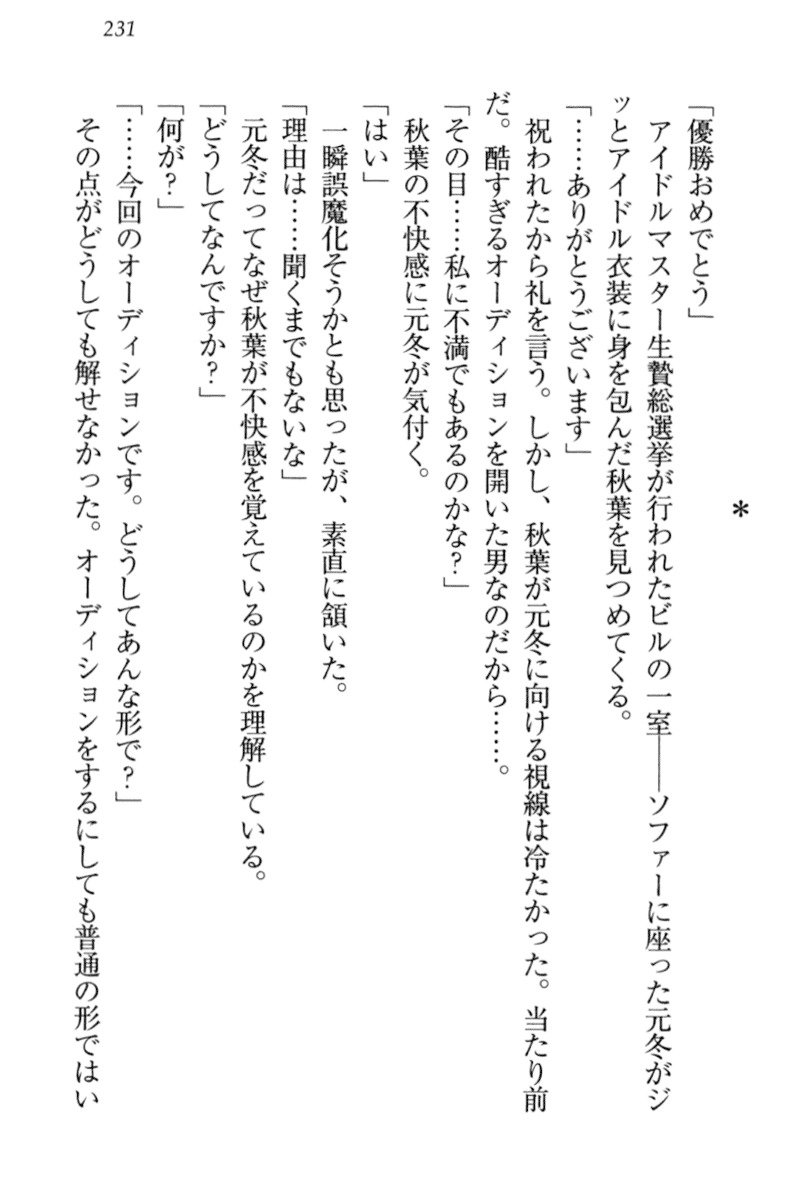 231
*
「優勝おめでとう」
　アイドルマスター生贄総選挙が行われたビルの一室――ソファーに座った元冬がジ
ッとアイドル衣装に身を包んだ秋葉を見つめてくる。
「……ありがとうございます」
　祝われたから礼を言う。しかし、秋葉が元冬に向ける視線は冷たかった。当たり前
だ。酷すぎるオーディションを開いた男なのだから……。
「その目……私に不満でもあるのかな？」
　秋葉の不快感に元冬が気付く。
「はい」
　一瞬誤魔化そうかとも思ったが、素直に頷いた。
「理由は……聞くまでもないな」
　元冬だってなぜ秋葉が不快感を覚えているのかを理解している。
「どうしてなんですか？」
「何が？」
「……今回のオーディションです。どうしてあんな形で？」
　その点がどうしても解せなかった。オーディションをするにしても普通の形ではい